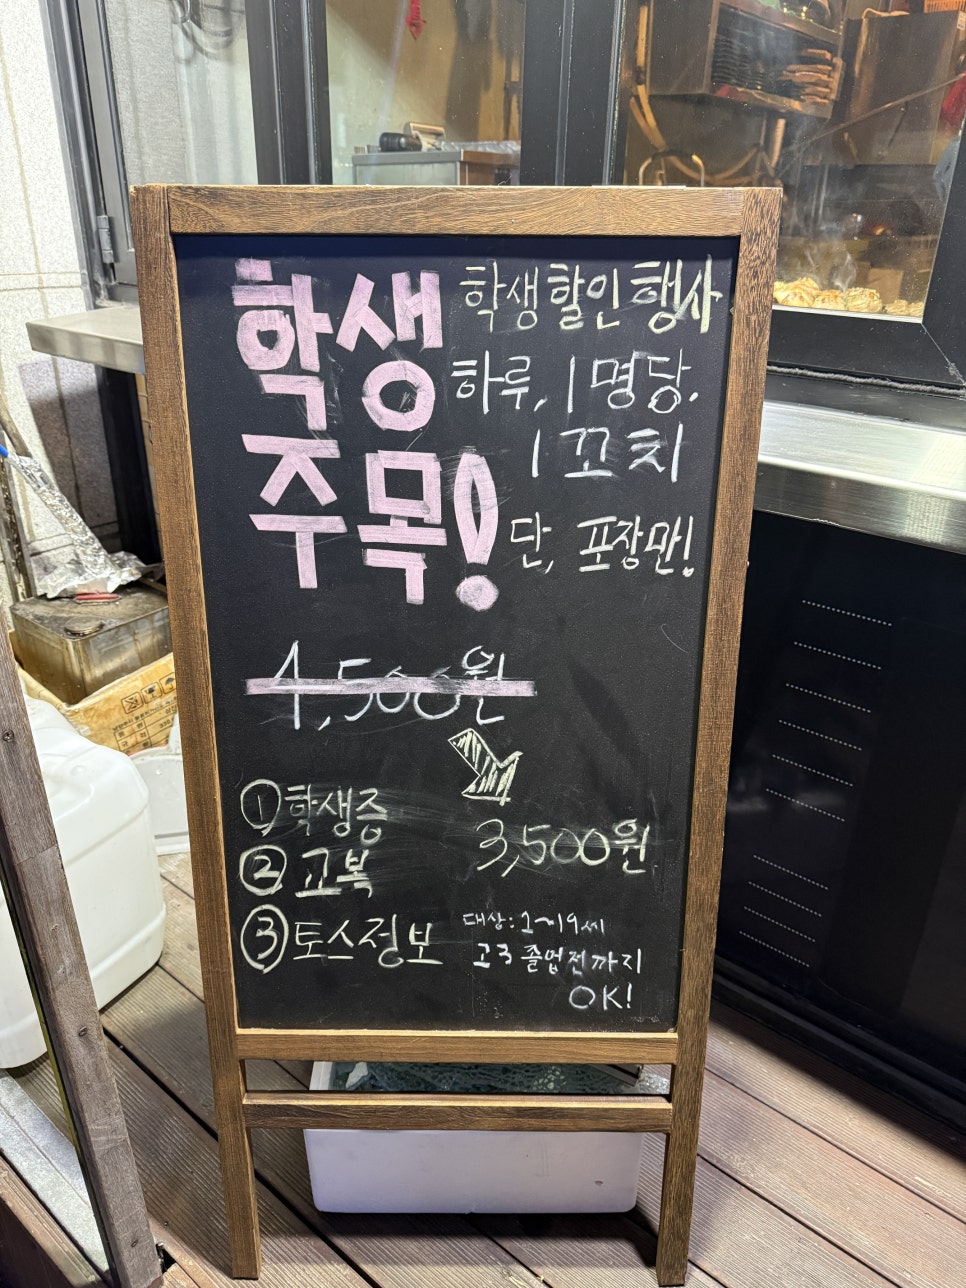 학생
주목!
학생 할인 행사
하루, 1명당.
1꼬치
단, 포장만!
4,500원
3,500원
① 학생증
② 교복
③ 토스정보
대상: 1~19세
고3 졸업전까지
OK!